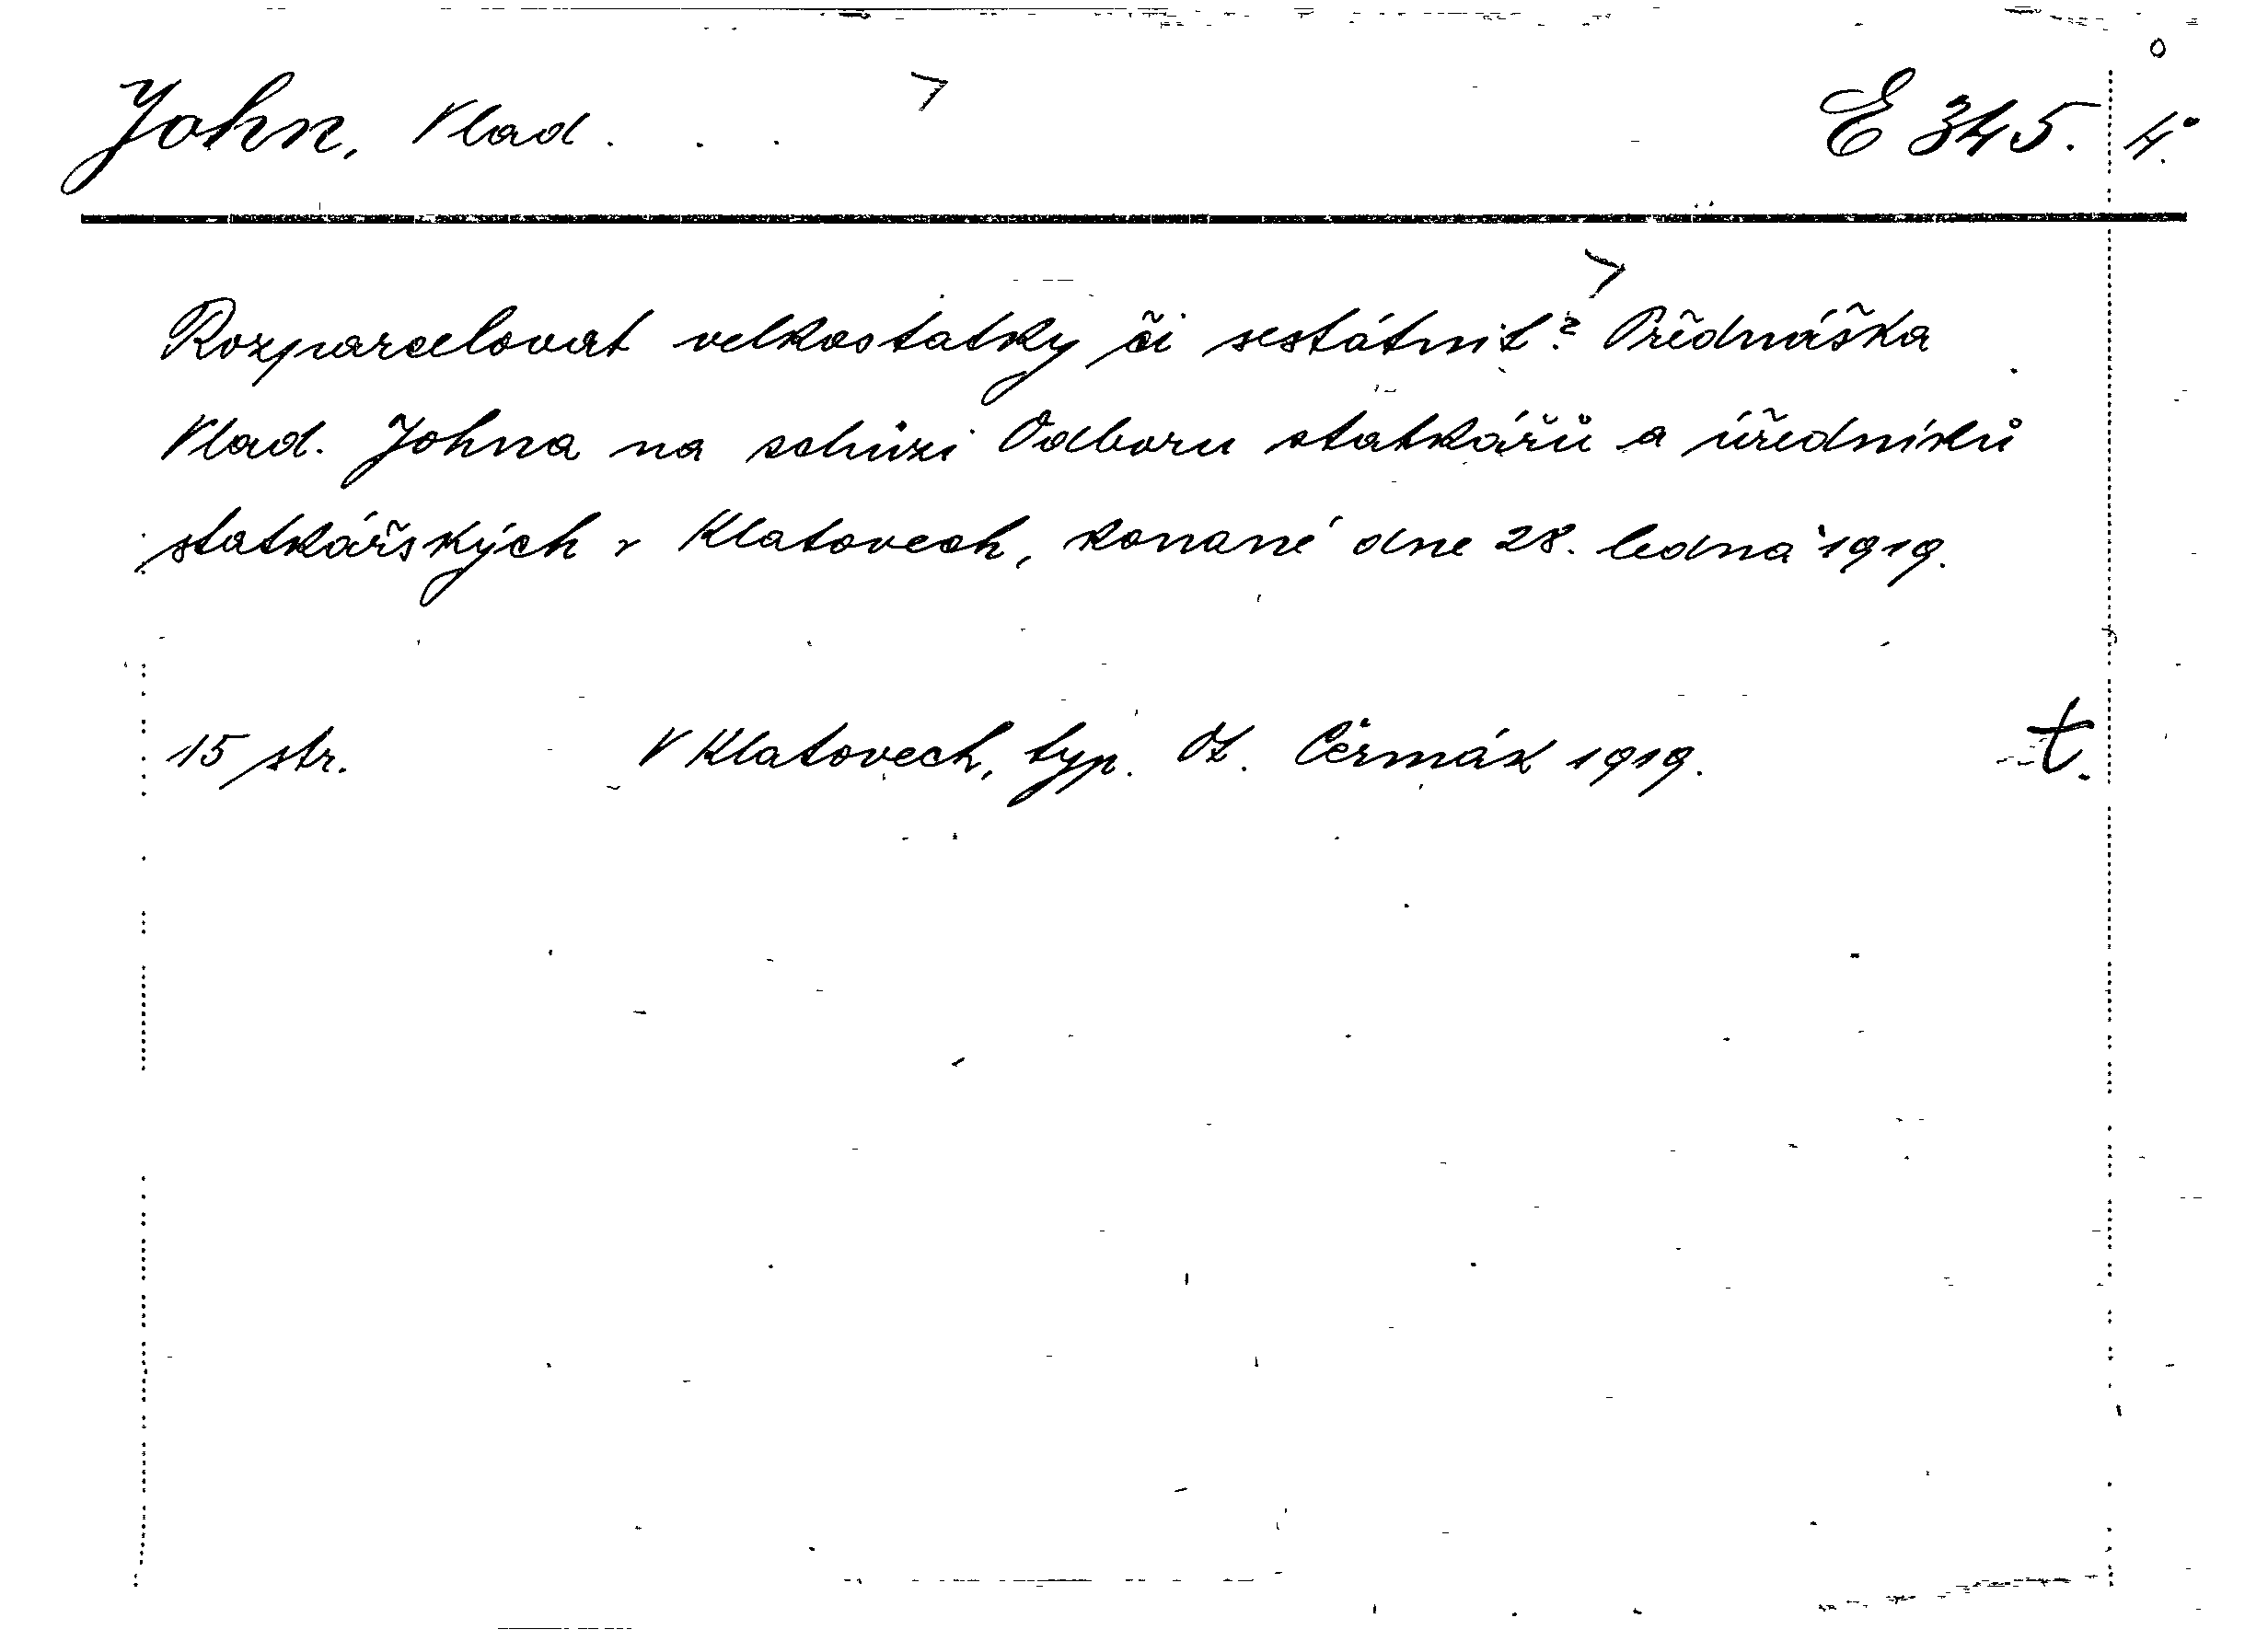 John, Vlad. . . E 345. 4°.
Rozparcelovat velkostatky či sestátnit? Přednáška
Vlad. Johna na schůzi Odboru statkářů a úředníků
statkářských v Klatovech, konané dne 28. ledna 1919.
15 str. V Klatovech, typ. Ot. Čermák 1919. t.